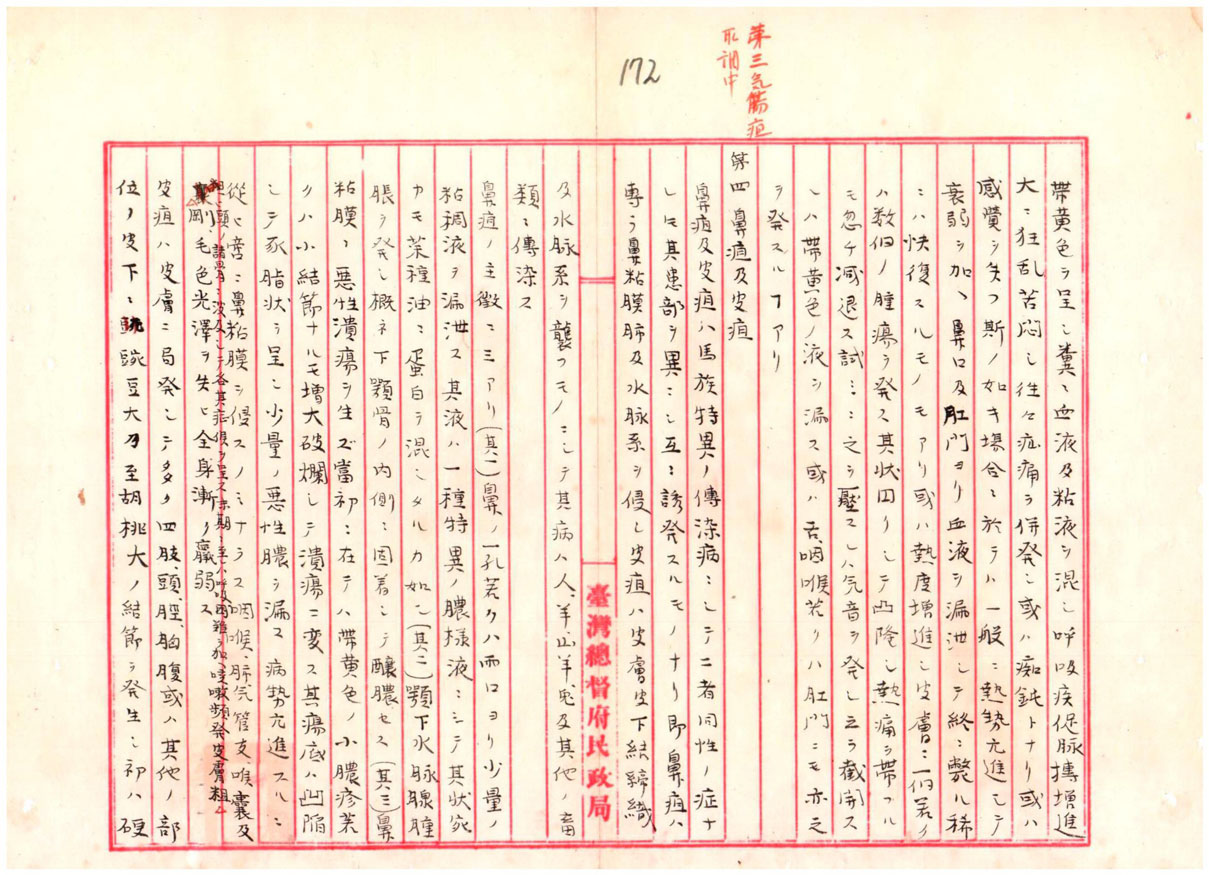 172
第三気腫疽
取調中
帯黄色ヲ呈シ糞ニ血液及粘液ヲ混シ呼吸疾促脉搏増進
大ニ狂乱苦悶シ往々症痛ヲ併発シ或ハ痴鈍トナリ或ハ
感覺ヲ失フ斯ノ如キ場合ニ於テハ一般ニ熱勢亢進シテ
衰弱ヲ加ヘ鼻口及肛門ヨリ血液ヲ漏泄シテ終ニ斃ル稀
ニハ快復スルモノモアリ或ハ熱度増進シ皮膚ニ一個若ク
ハ数個ノ腫瘍ヲ発ス其状円クシテ凸隆シ熱痛ヲ帯フル
モ忽チ減退ス試ミニ之ヲ壓スレハ气音ヲ発シ之ヲ截開ス
レハ帯黄色ノ液ヲ漏ス或ハ舌咽喉若クハ肛門ニモ亦之
ヲ発スルヿアリ
第四 鼻疽及皮疽
鼻疽及皮疽ハ馬族特異ノ傳染病ニシテ二者同性ノ症ナ
レモ其患部ヲ異ニシ互ニ誘発スルモノナリ即鼻疽ハ
専ラ鼻粘膜肺及水脉系ヲ侵シ皮疽ハ皮膚皮下結締織
及水脉系ヲ襲フモノニシテ其病ハ人、羊、山羊、兎及其他ノ畜
類ニ傳染ス
鼻疽ノ主徴ニ三アリ(其一)鼻ノ一孔若クハ両口ヨリ少量ノ
粘稠液ヲ漏泄ス其液ハ一種特異ノ膿様液ニシテ其状宛
カモ菜種油ニ蛋白ヲ混シタルカ如シ(其二)顎下水脉腺腫
脹ヲ発シ概ネ下顎骨ノ内側ニ固着シテ釀膿セス(其三)鼻
粘膜ニ悪性潰瘍ヲ生ズ當初ニ在テハ帯黄色ノ小膿疹若
クハ小結節ナルモ増大破爛シテ潰瘍ニ変ス其瘍底ハ凹陥
シテ豕脂状ヲ呈シ少量ノ悪性膿ヲ漏ス病勢亢進スルニ
從ヒ啻ニ鼻粘膜ヲ侵スノミナラス咽喉、肺気管支喉嚢及
頭ノ諸竇ニ波及シテ各其症候ヲ呈ス末期ニ至レハ呼吸困難咳嗽頻発皮膚粗
剛毛色光澤ヲ失ヒ全身漸ク羸弱ス
皮疽ハ皮膚ニ局発シテ多ク四肢、頭、脛、胸腹或ハ其他ノ部
位ノ皮下ニ豌豆大乃至胡桃大ノ結節ヲ発生シ初ハ硬
臺灣總督府民政局